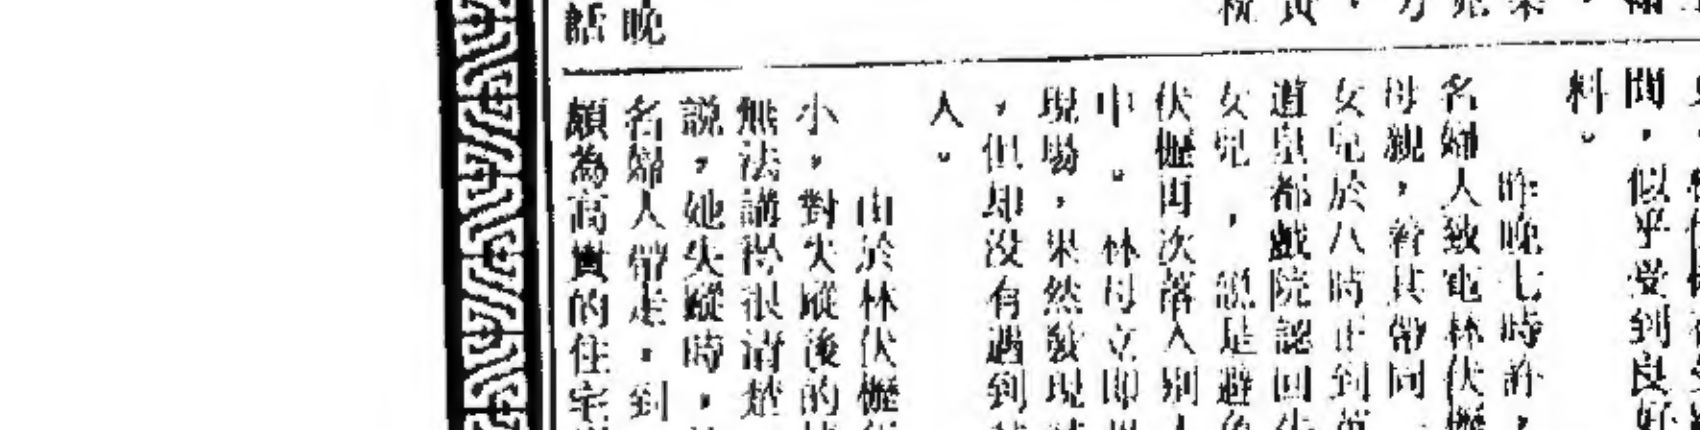 晚
話
間，似乎受到良好
料。
昨晚七時許，
名婦人致電林伏櫪
母親，着其帶同
女兒於八時正到
道皇都戲院認回
女兒，說是避免
伏櫪再次落入別人
中。林母立即
現場，果然發現
，但却沒有遇到
人。
由於林伏櫪
小，對失蹤後的
無法講得很清楚
說，她失蹤時，
名婦人帶走，到
頗為高貴的住宅